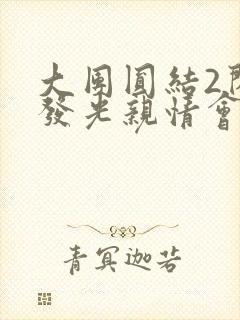 大团圆結2閃
發光親情會
青冥迦若